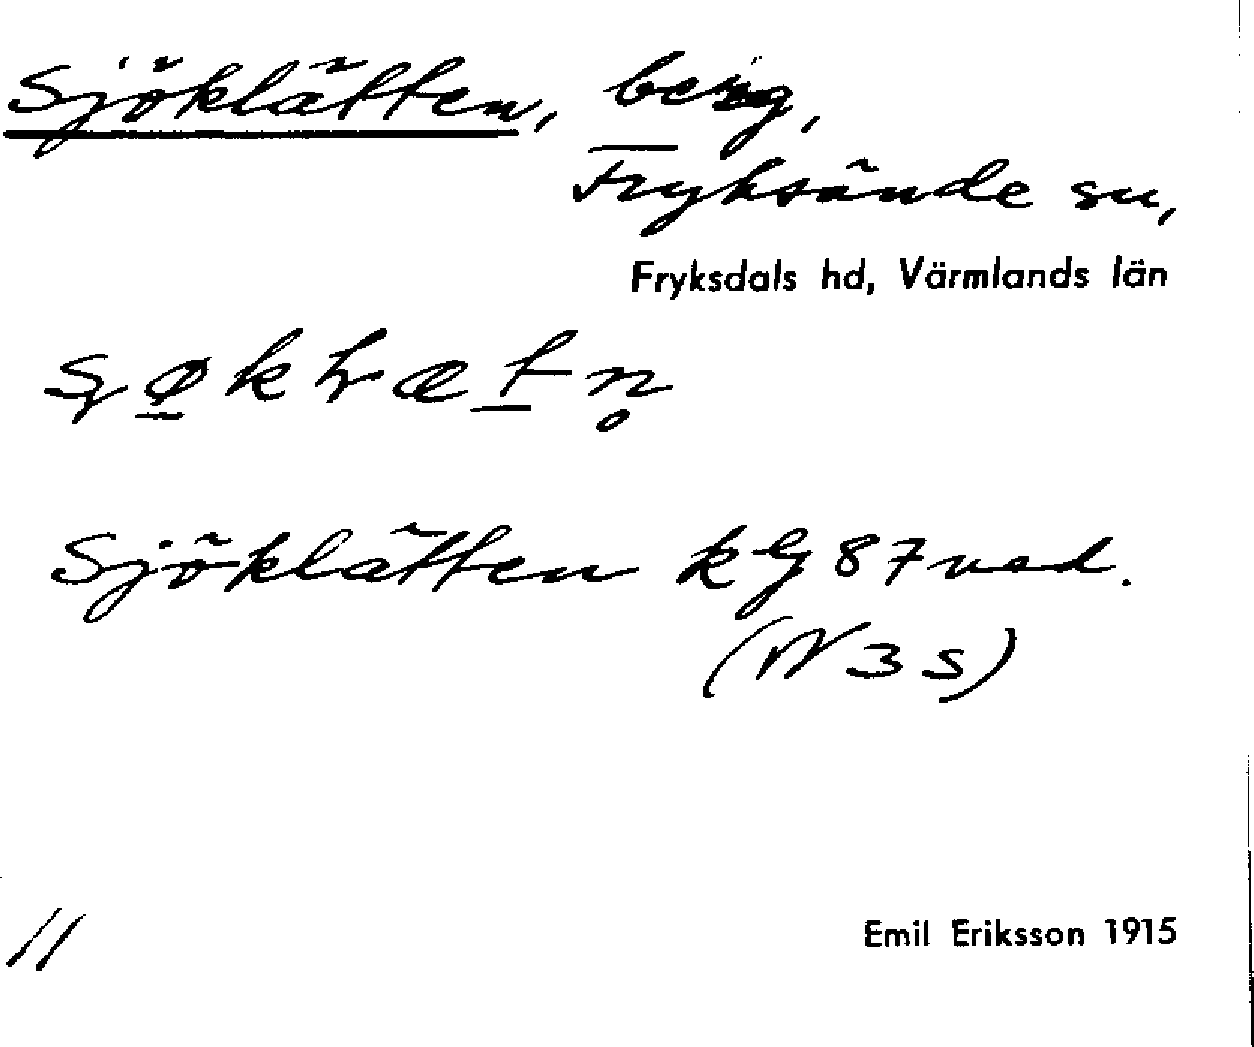 Sjöklätten, berg,
Fryksände sn,
Fryksdals hd, Värmlands län
Sjöklätten kbl 87 ned.
(N 3 s)
11
Emil Eriksson 1915